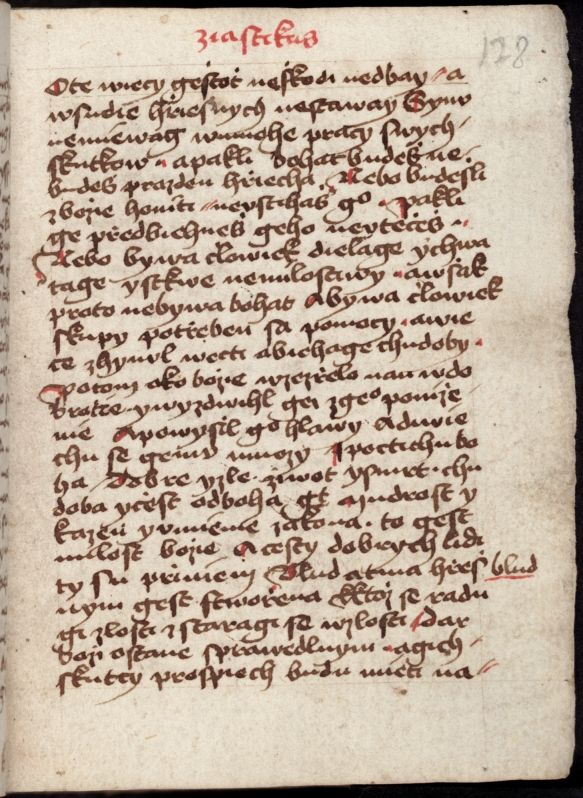 ziastikus
128
Ote wiecy gestot neskodi nedbay a
wsudie hřiesnych nestaway Synu
nemiewag wmnohe pracy swych
skutkow a pakli bohat budeš ne
budeš prazden hřiecha Nebo budešli
zbozie honiti neystihaš go pakli
ge předbiehneš geho neyteceš
Nebo bywa clowiek dielage ychwa
tage ystkwe nemilostiwy awšak
proto nebywa bohat Abywa clowiek
skupy potřeben sa pomocy awie
ce zhynul wecti abiehage chudoby
potom oko bozie wzezřelo nan wdo
brotie ywyzdwihl gei zgeo poniže
nie Apowysil go hlawy Adiwie
chu se gemu mnozy Apoctichu bo
ha Dobre yzle ziwot ysmrt chu
doba ycest odboha gt Mudrost y
kazen yumienie zakona to gest
milost bozie Acesty dobrych lidi
ty su přiniem Blud atma hřieš
blud
nym gest stwořena Ktoz se radu
gi zlosti z staragi se wzlosti Dar
bozi ostane sprawedlnym agich
skutcy prospiech budu mieti na